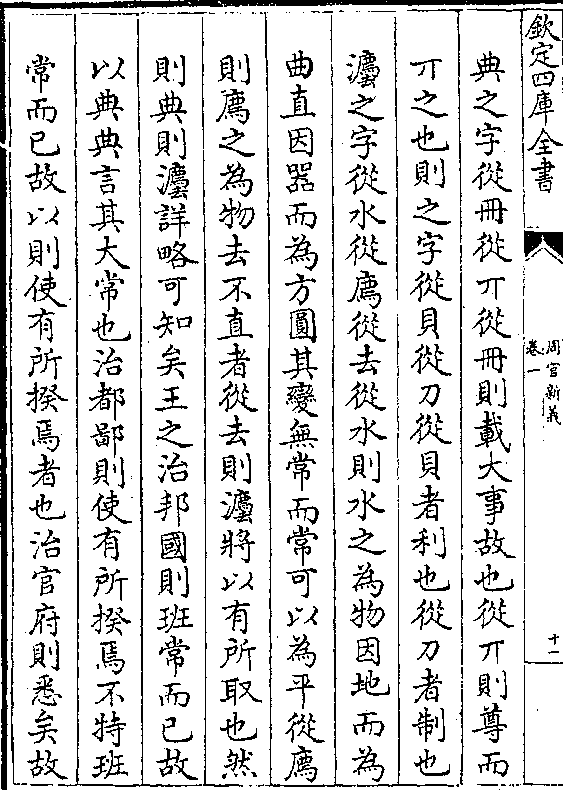 欽定四庫全書
周官新義
卷一
十一
典之字從冊從丌從冊則載大事故也從丌則尊而
丌之也則之字從貝從刀從貝者利也從刀者制也
灋之字從水從廌從去從水則水之為物因地而為
曲直因器而為方圓其變無常而常可以為平從廌
則廌之為物去不直者從去則灋將以有所取也然
則典則灋詳略可知矣王之治邦國則班常而已故
以典典言其大常也治都鄙則使有所揆焉不特班
常而已故以則使有所揆焉者也治官府則悉矣故